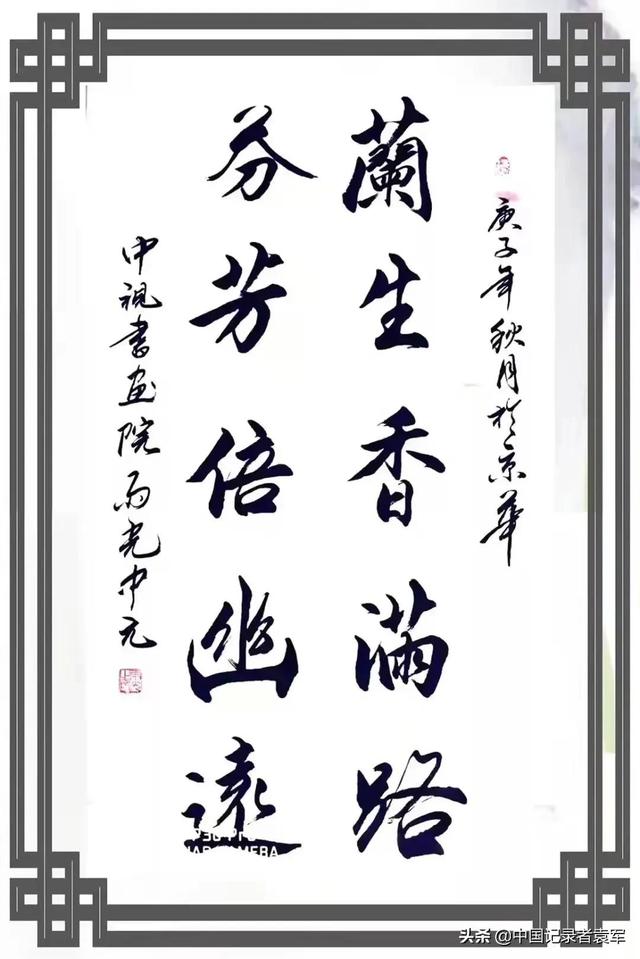 庚子年秋月於京華
蘭生香滿路
芬芳倍幽遠
中視書画院光中元
头条 @中国记录者袁军